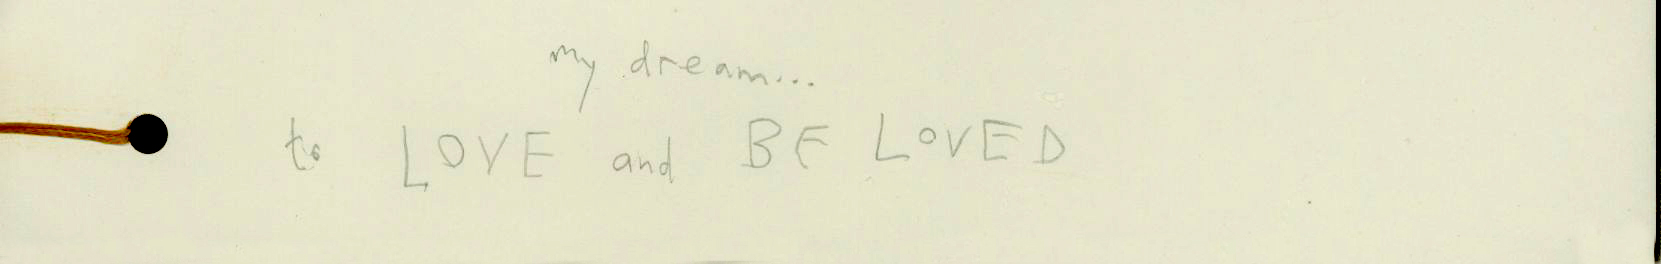 my dream...
to LOVE and BE LOVED